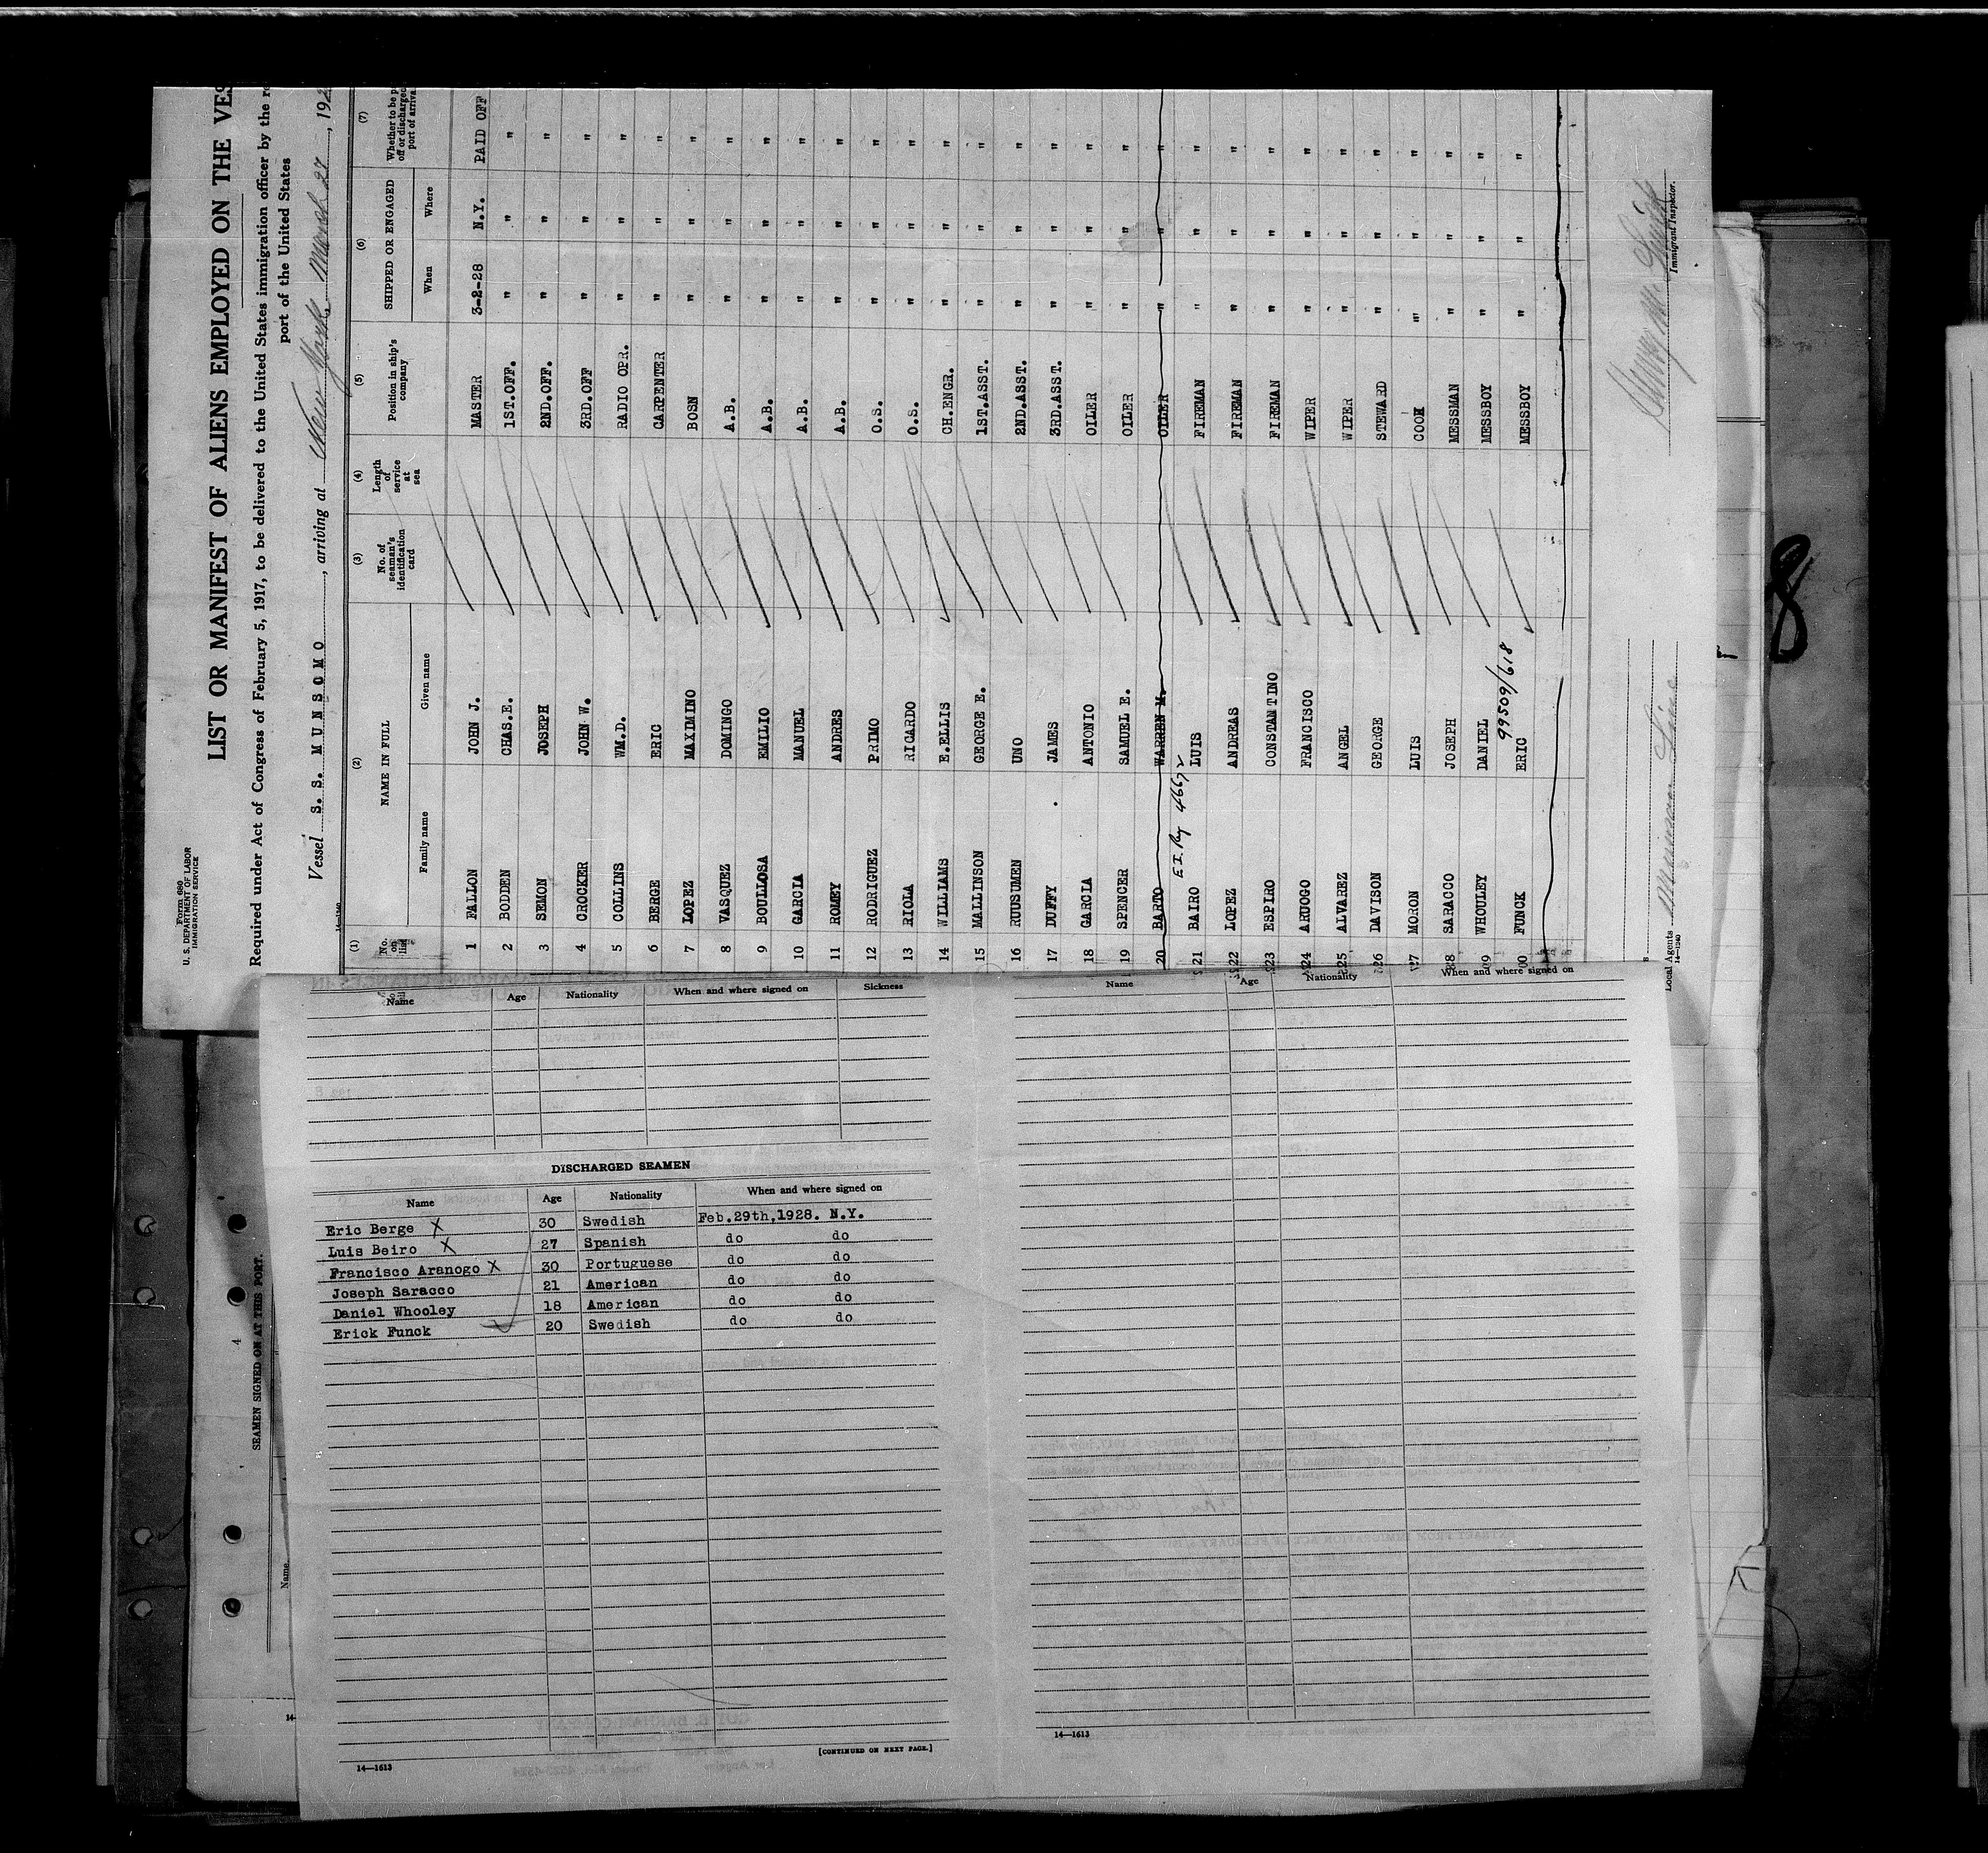 Form 680
U. S. DEPARTMENT OF LABOR
IMMIGRATION SERVICE
LIST OR MANIFEST OF ALIENS EMPLOYED ON THE VES
Required under Act of Congress of February 5, 1917, to be delivered to the United States immigration officer by the re
port of the United States
Vessel S. S. MUNSOMO, arriving at New York March 27, 192
14—1240
(1) (2) (3) (4) (5) (6) (7)
No. on list NAME IN FULL No. of seaman's identification card Length of service at sea Position in ship's company SHIPPED OR ENGAGED Whether to be p off or discharged port of arrival
Family name Given name When Where
1 FALLON JOHN J. MASTER 3-2-28 N.Y. PAID OFF
2 BODDEN CHAS.E. 1ST.OFF. " " "
3 SEMON JOSEPH 2ND.OFF. " " "
4 CROCKER JOHN W. 3RD.OFF " " "
5 COLLINS WM.D. RADIO OPR. " " "
6 BERGE ERIC CARPENTER " " "
7 LOPEZ MAXIMINO BOSN " " "
8 VASQUEZ DOMINGO A.B. " " "
9 BOULLOSA EMILIO A.B. " " "
10 GARCIA MANUEL A.B. " " "
11 ROMEY ANDRES A.B. " " "
12 RODRIGUEZ PRIMO O.S. " " "
13 RIOLA RICARDO O.S. " " "
14 WILLIAMS E.ELLIS CH.ENGR. " " "
15 MALLINSON GEORGE E. 1ST.ASST. " " "
16 RUUSUMEN UNO 2ND.ASST. " " "
17 DUFFY JAMES 3RD.ASST. " " "
18 GARCIA ANTONIO OILER " " "
19 SPENCER SAMUEL E. OILER " " "
20 BARTO WARREN M. OILER " " "
E I. Reg 46672
21 BAIRO LUIS FIREMAN " " "
22 LOPEZ ANDREAS FIREMAN " " "
23 ESPIRO CONSTANTINO FIREMAN " " "
24 ARUOGO FRANCISCO WIPER " " "
25 ALVAREZ ANGEL WIPER " " "
26 DAVISON GEORGE STEWARD " " "
27 MORON LUIS COOK " " "
28 SARACCO JOSEPH MESSMAN " " "
29 WHOULEY DANIEL MESSBOY " " "
99509/618
30 FUNCK ERIC MESSBOY " " "
Immigrant Inspector.
Local Agents Munson Line
14—1240
8
Name Age Nationality When and where signed on Sickness
DISCHARGED SEAMEN
Name Age Nationality When and where signed on
Eric Berge X 30 Swedish Feb.29th,1928. N.Y.
Luis Beiro X 27 Spanish do do
Francisco Aranogo X 30 Portuguese do do
Joseph Saracco 21 American do do
Daniel Whooley 18 American do do
Erick Funck 20 Swedish do do
[CONTINUED ON NEXT PAGE.]
14—1613
Name Age Nationality When and where signed on
14—1613
4
SEAMEN SIGNED ON AT THIS PORT.
Name
14-